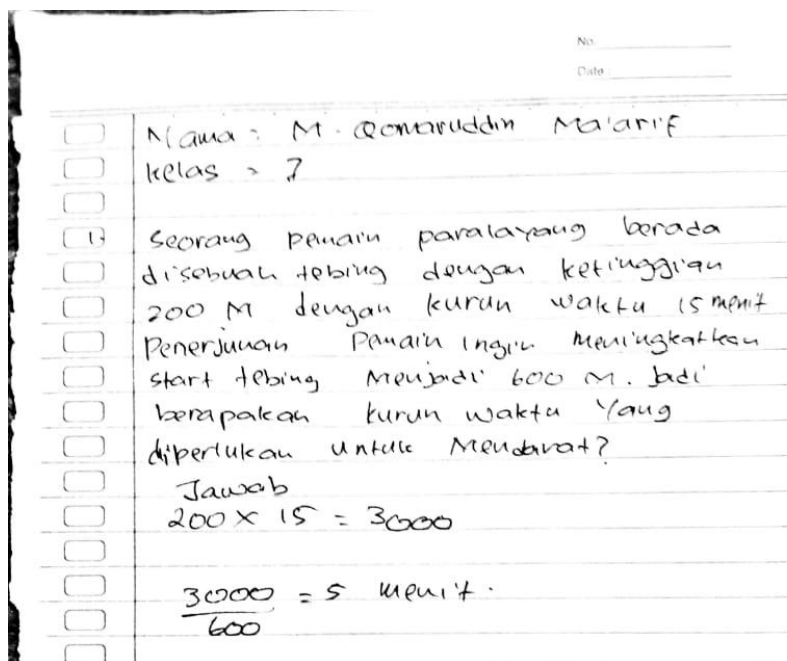 No.
Date
Nama : M. Qomaruddin Ma'arif
Kelas : 7
1. Seorang pemain paralayang berada
disebuah tebing dengan ketinggian
200 M dengan kurun waktu 15 menit
Penerjunan Pemain ingin meningkatkan
start tebing menjadi 600 m. Jadi
berapakah kurun waktu yang
diperlukan untuk Mendarat?
Jawab
200 × 15 = 3000
3000 = 5 menit.
600